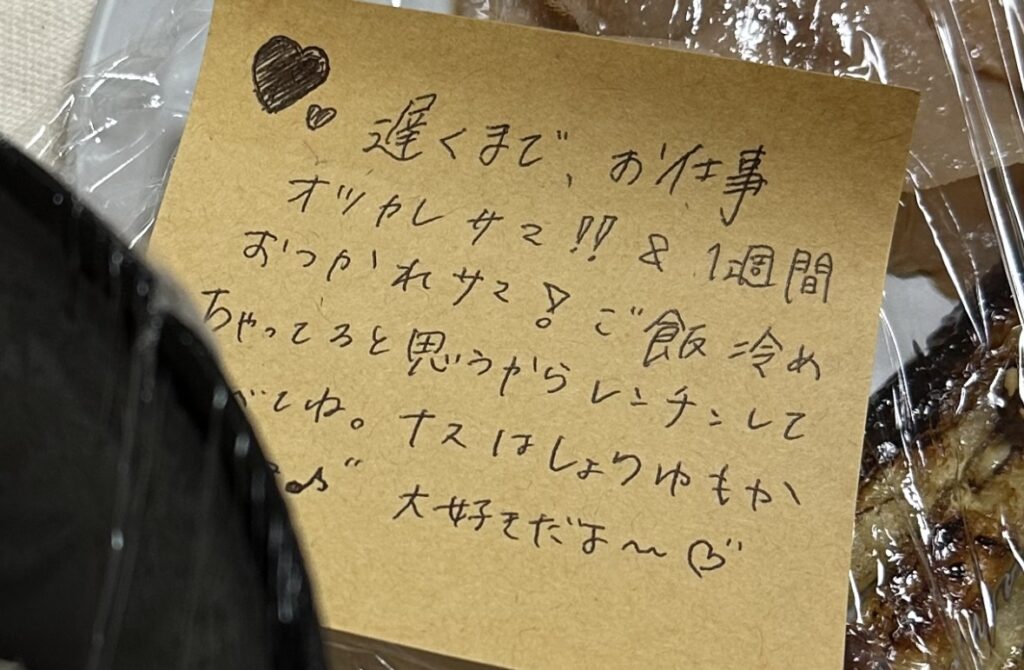 遅くまで、お仕事
オツカレサマ!! & 1週間
おつかれサマ! ご飯冷め
ちゃってると思うからレンチンして
べてね。ナスはしょうゆもか
大好きだよ〜♡